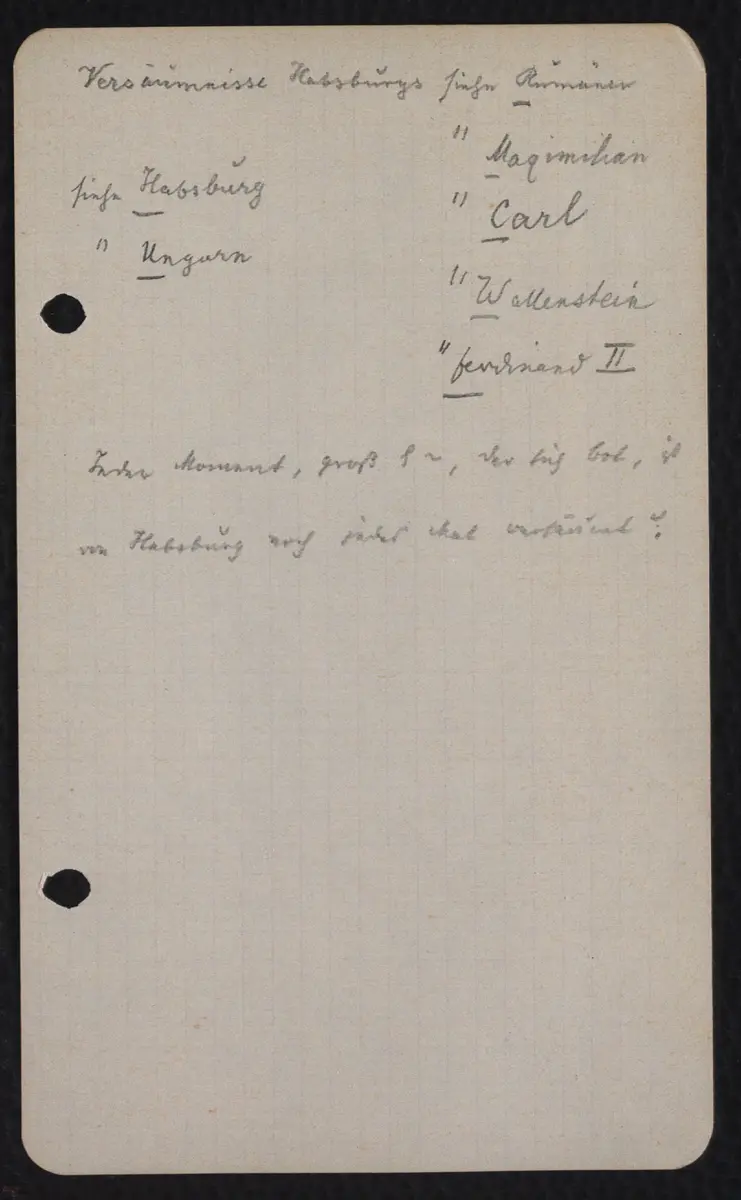 Versäumnisse Habsburgs siehe Rumänen
" Maximilian
siehe Habsburg
" Carl
" Ungarn
" Wallenstein
" Ferdinand II
Jeder Moment, groß, der sich bot, ist
von Habsburg noch jedes Mal versäumt